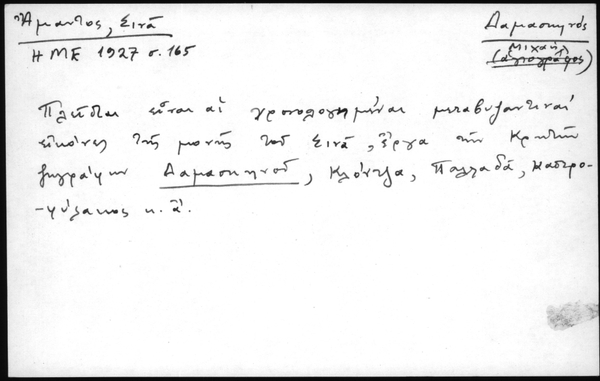 Ἄμαντος, Σινᾶ
Δαμασκηνός
Η ΜΕ 1927 σ. 165
Μιχαήλ
(ἁγιογράφος)
Πλεῖσται εἶναι αἱ χρονολογημέναι μεταβυζαντιναί
εἰκόνες τῆς μονῆς τοῦ Σινᾶ, ἔργα τῶν Κρητῶν
ζωγράφων Δαμασκηνοῦ, Κλόντζα, Παλλαδᾶ, Καστρο-
-φύλακος κ. ἄ.